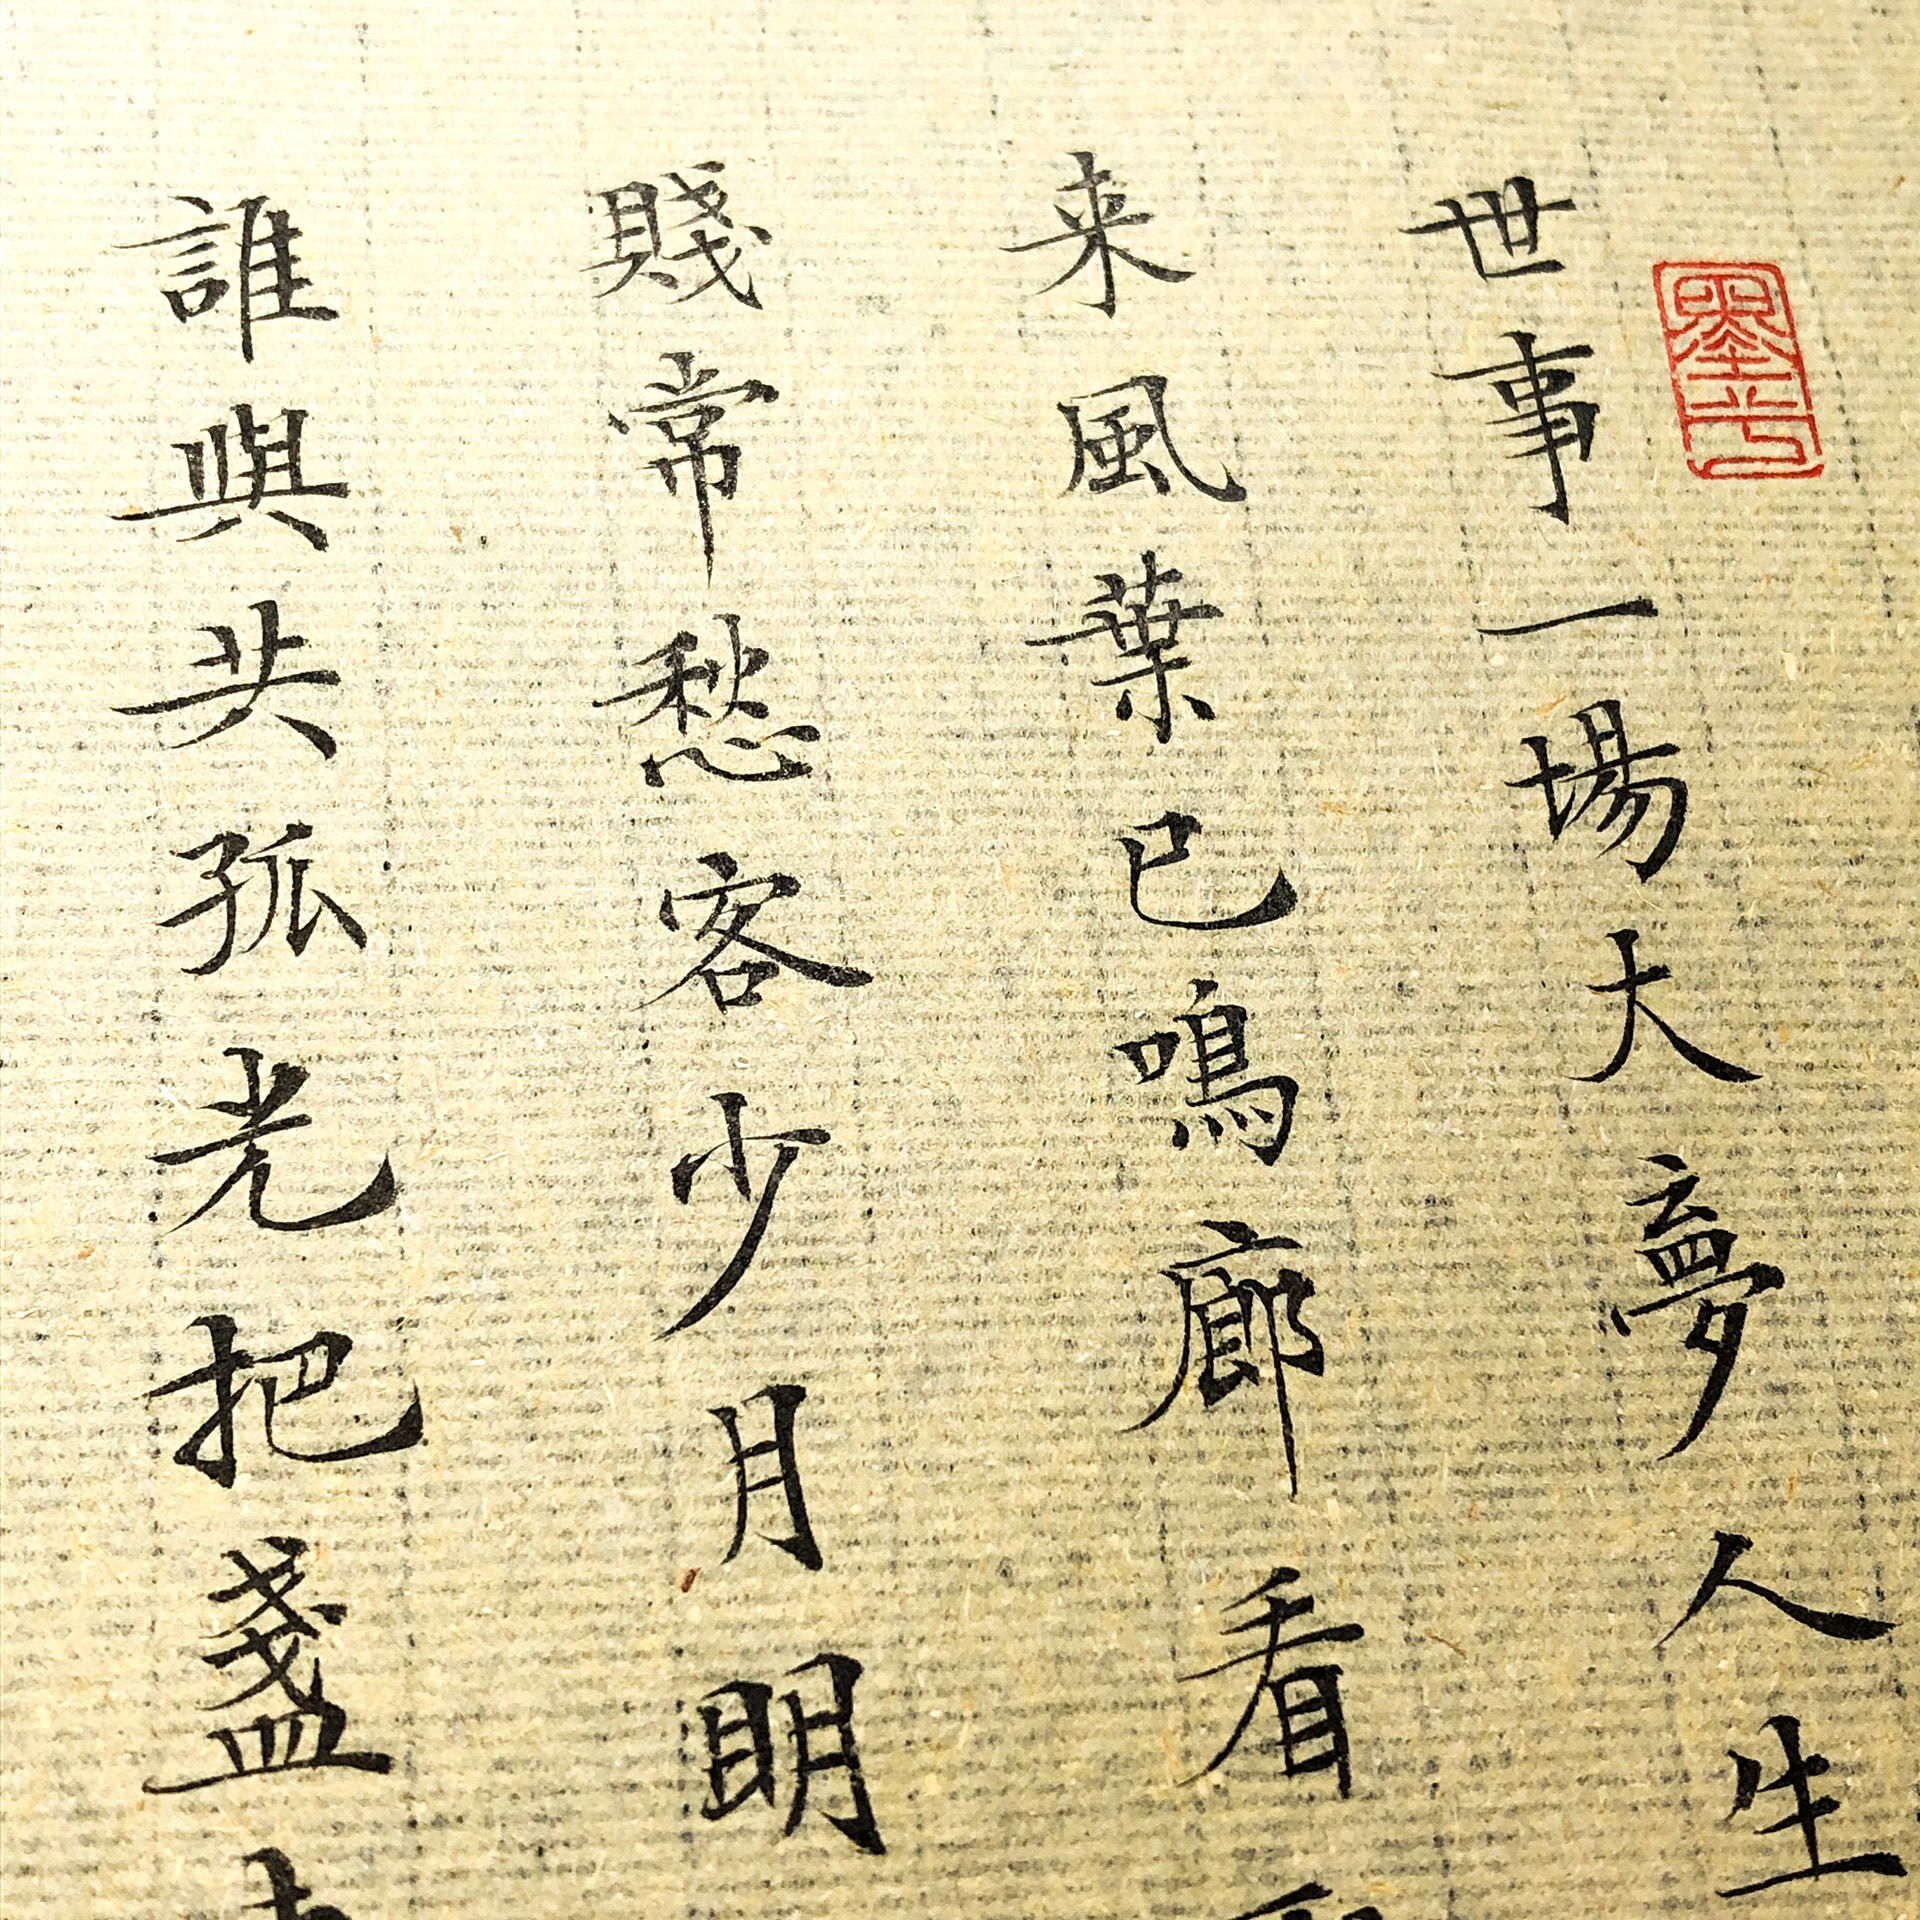 世事一場大夢人生
来風葉已鳴廊看
賤常愁客少月明
誰與共孤光把盞